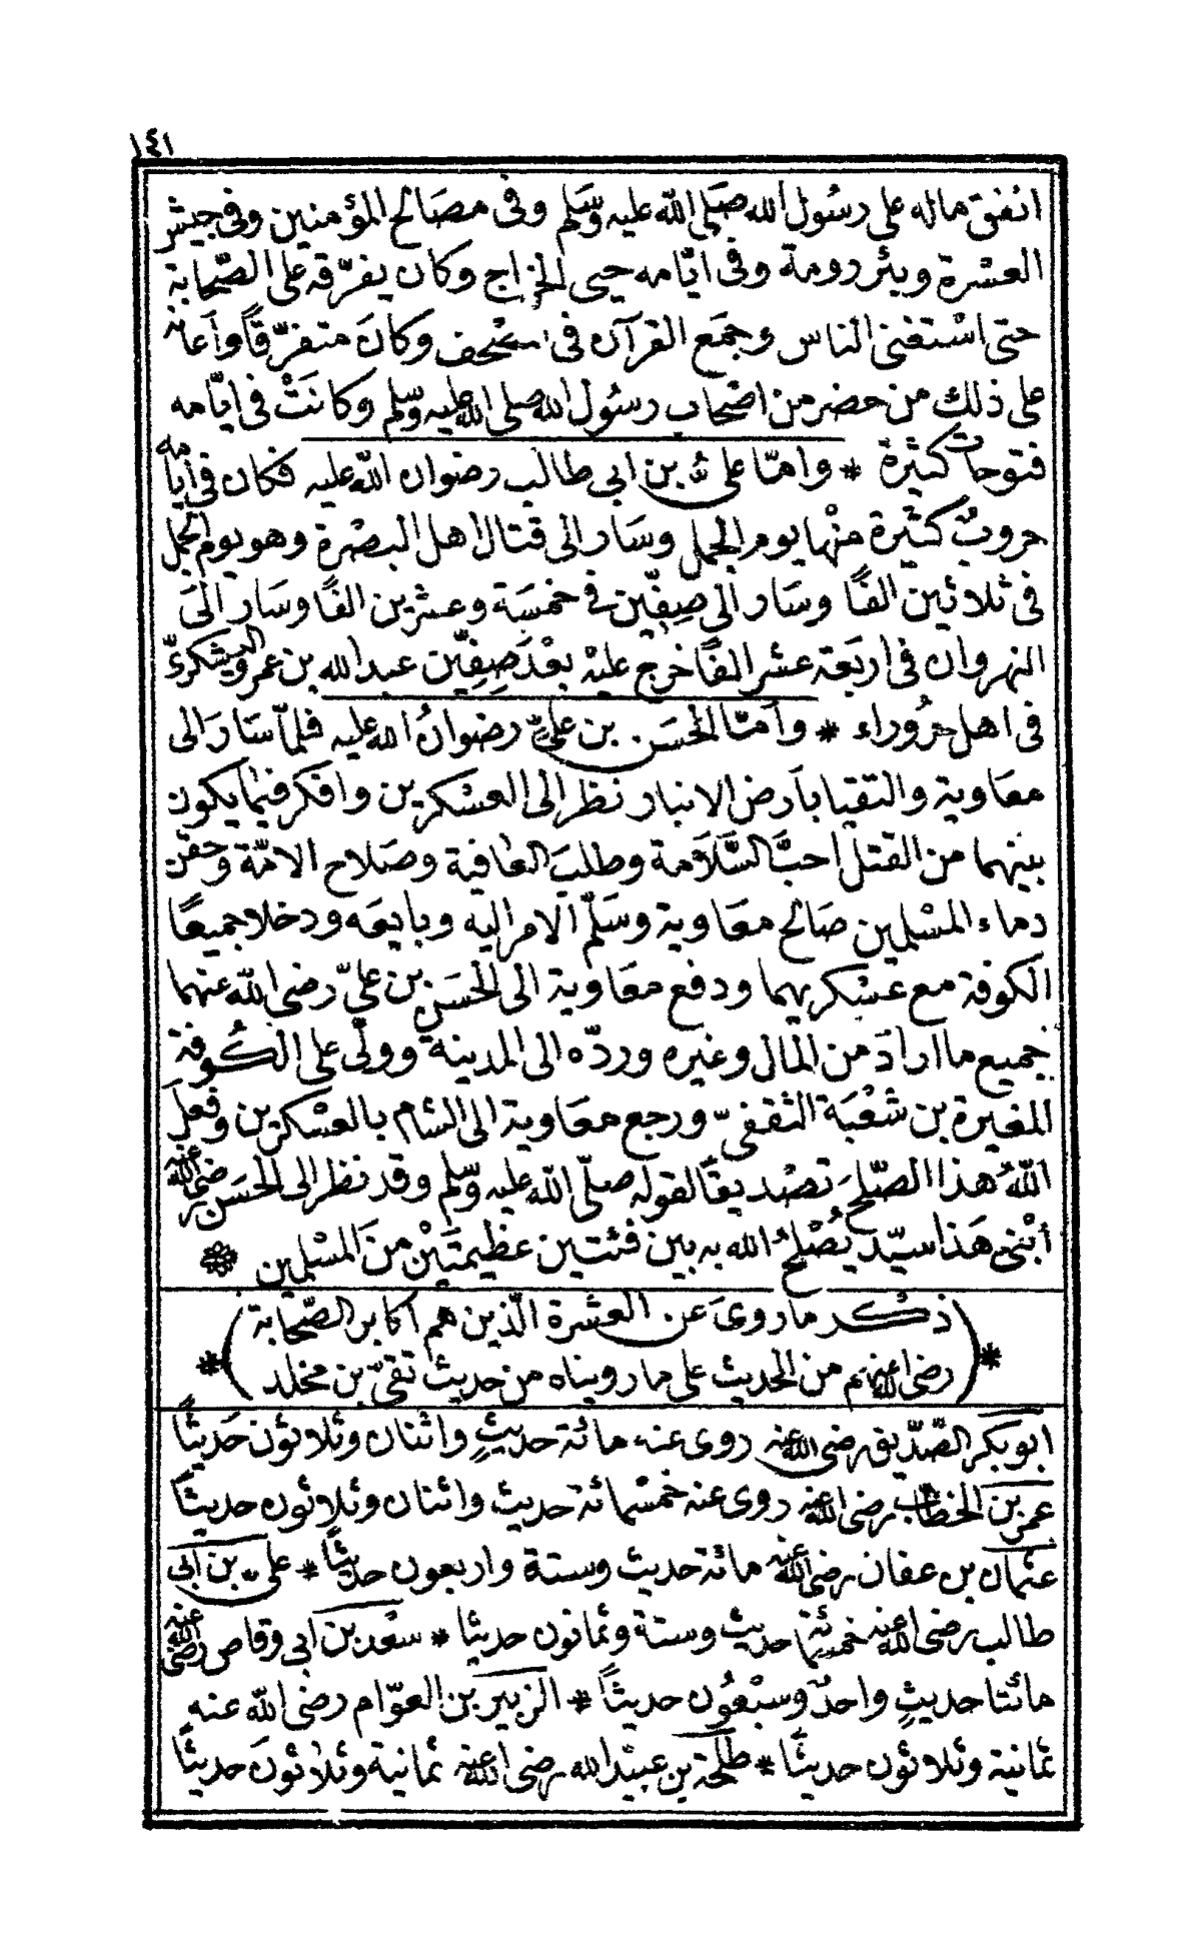 ١٤١
انفق ماله على رسُول الله صَلى الله عليه وسَلم وفى مصَالح المؤمنين وفى جيش
العسْرة وبئر رومة وفى ايّامه حيى الخراج وكان يفرّقه على الصّحابة
حتى اسْتغنى الناس وجمَع القرآن فى وكانَ متفرّقًا وأعانه
على ذلك من حضر من اصْحاب رسُول الله صلى الله عليه وسّلم وكانَتْ فى ايّامه
فتوحات كثيرة * وامّا علىّ بن ابى طالب رضوان الله عليه فكان فى ايامه
حروبٌ كثيرة منْها يوم الجمل وسَار الى قتال اهل البصْرة وهو يوم الجمل
فى ثلاثين الفًا وسَار الى صِفّين فى خمسَة وعشرين الفًا وسَار الىَ
النهروان فى اربَعة عشر الفًا خرج عليْه بعْدَ صِفِيّن عبد الله بن عمرو اليشكرىّ
فى اهل حرُوراء * وأمّا الحسَن بن علىّ رضوانُ الله عليه فلمّا سَارَ الى
معَاوية والتقيا بأرض الانبار نظر الى العسْكرين وافكر فيما يكون
بينهما من القتل احبَّ السَّلاَمة وطلبَ العافية وصَلاح الامّة وحقن
دماء المسْلمين صَالح معَاوية وسَلّم الامر اليه وبايعَه ودخلا جميعًا
الكوفة مع عسْكريهما ودفع معَاوية الى الحسَن بن علىّ رضى الله عنهما
جميع ما ارادَ من المال وغيره وردّه الى المدينة وولّى على الكُوفة
المغيرة بن شعْبَة الثقفىّ ورجع معَاوية الى الشام بالعسْكرين وفعل
اللهُ هذا الصّلحَ تصْديقًا لقوله صلّى الله عليه وسّلم وقد نظر الى الحسَن رضى الله عنه
أبْنى هَذا سيّد يُصْلحُ الله به بين فئتين عظيمتَيْن منَ المسْلمين
* (ذكْر ما روىَ عن العشرة الّذين هم اكابر الصّحابة
رضى الله عنهم من الحديث على ما رويناه من حديث تقىّ بن مخلد) *
ابو بكر الصّدّيق رضى الله عنه روى عنه مائة حديثٍ واثنان وثلاثون حَديثًا
عمر بن الخطاب رضى الله عنه روى عنه خمسْمائة حديث واثنان وثلاثون حديثًا
عثمان بن عفان رضى الله عنه مائة حديث وستة واربعون حديثًا * علىّ بن ابى
طالب رضى الله عنه خمسمائة حديث وستة وثمانون حديثا * سعْد بن ابى وقاص رضى الله عنه
مائتا حديثٍ واحدٌ وسبْعُون حديثًا * الزبير بن العوّام رضى الله عنه
ثمانية وثلاثون حديثًا * طلحة بن عبيْد الله رضى الله عنه ثمانية وثلاثونَ حديثًا